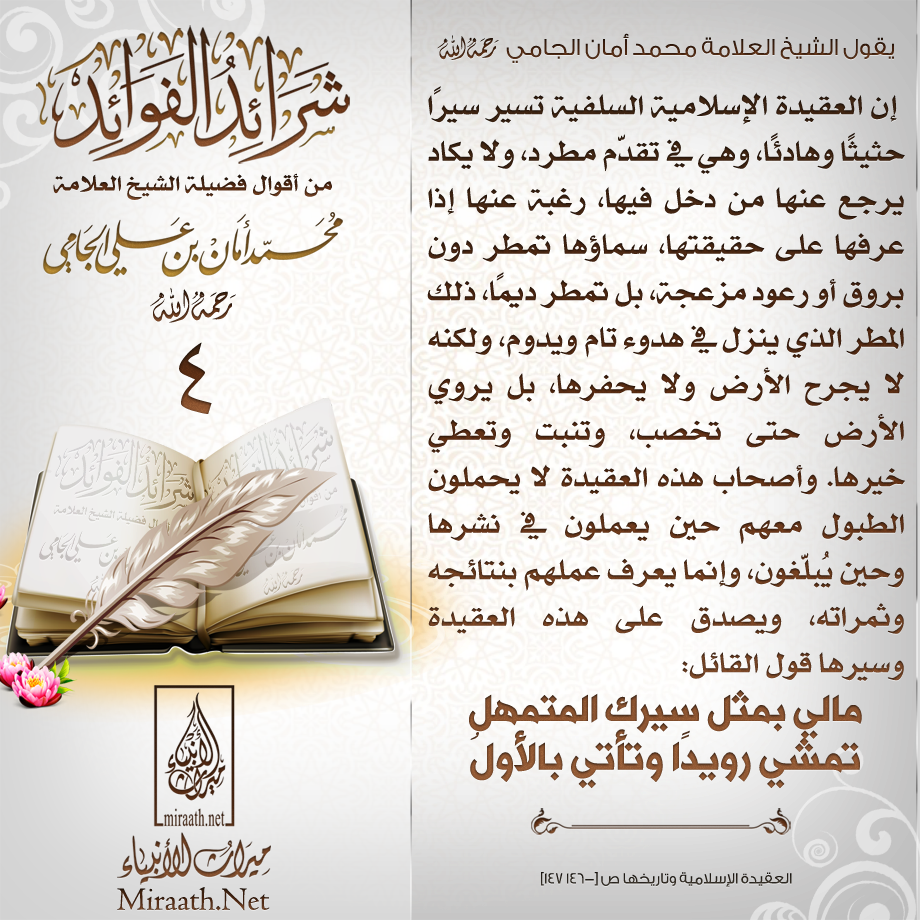 يقول الشيخ العلامة محمد أمان الجامي رحمه الله
إن العقيدة الإسلامية السلفية تسير سيرًا
حثيثًا وهادئًا، وهي في تقدّم مطرد، ولا يكاد
يرجع عنها من دخل فيها، رغبة عنها إذا
عرفها على حقيقتها، سماؤها تمطر دون
بروق أو رعود مزعجة، بل تمطر ديمًا، ذلك
المطر الذي ينزل في هدوء تام ويدوم، ولكنه
لا يجرح الأرض ولا يحفرها، بل يروي
الأرض حتى تخصب، وتنبت وتعطي
خيرها. وأصحاب هذه العقيدة لا يحملون
الطبول معهم حين يعملون في نشرها
وحين يُبلّغون، وإنما يعرف عملهم بنتائجه
وثمراته، ويصدق على هذه العقيدة
وسيرها قول القائل:
مالي بمثل سيرك المتمهلِ
تمشي رويدًا وتأتي بالأولُ
العقيدة الإسلامية وتاريخها ص [-١٤٦ ١٤٧]
شَرَائِدُ الفَوَائِدِ
من أقوال فضيلة الشيخ العلامة
مُحَمّد أمَان بن عَلي الجَامِي
رَحمَهُ اللهُ
٤
شَرَائِدُ الفَوَائِدِ
من أقوال فضيلة الشيخ العلامة
miraath.net
ميراث الأنبياء
Miraath.Net